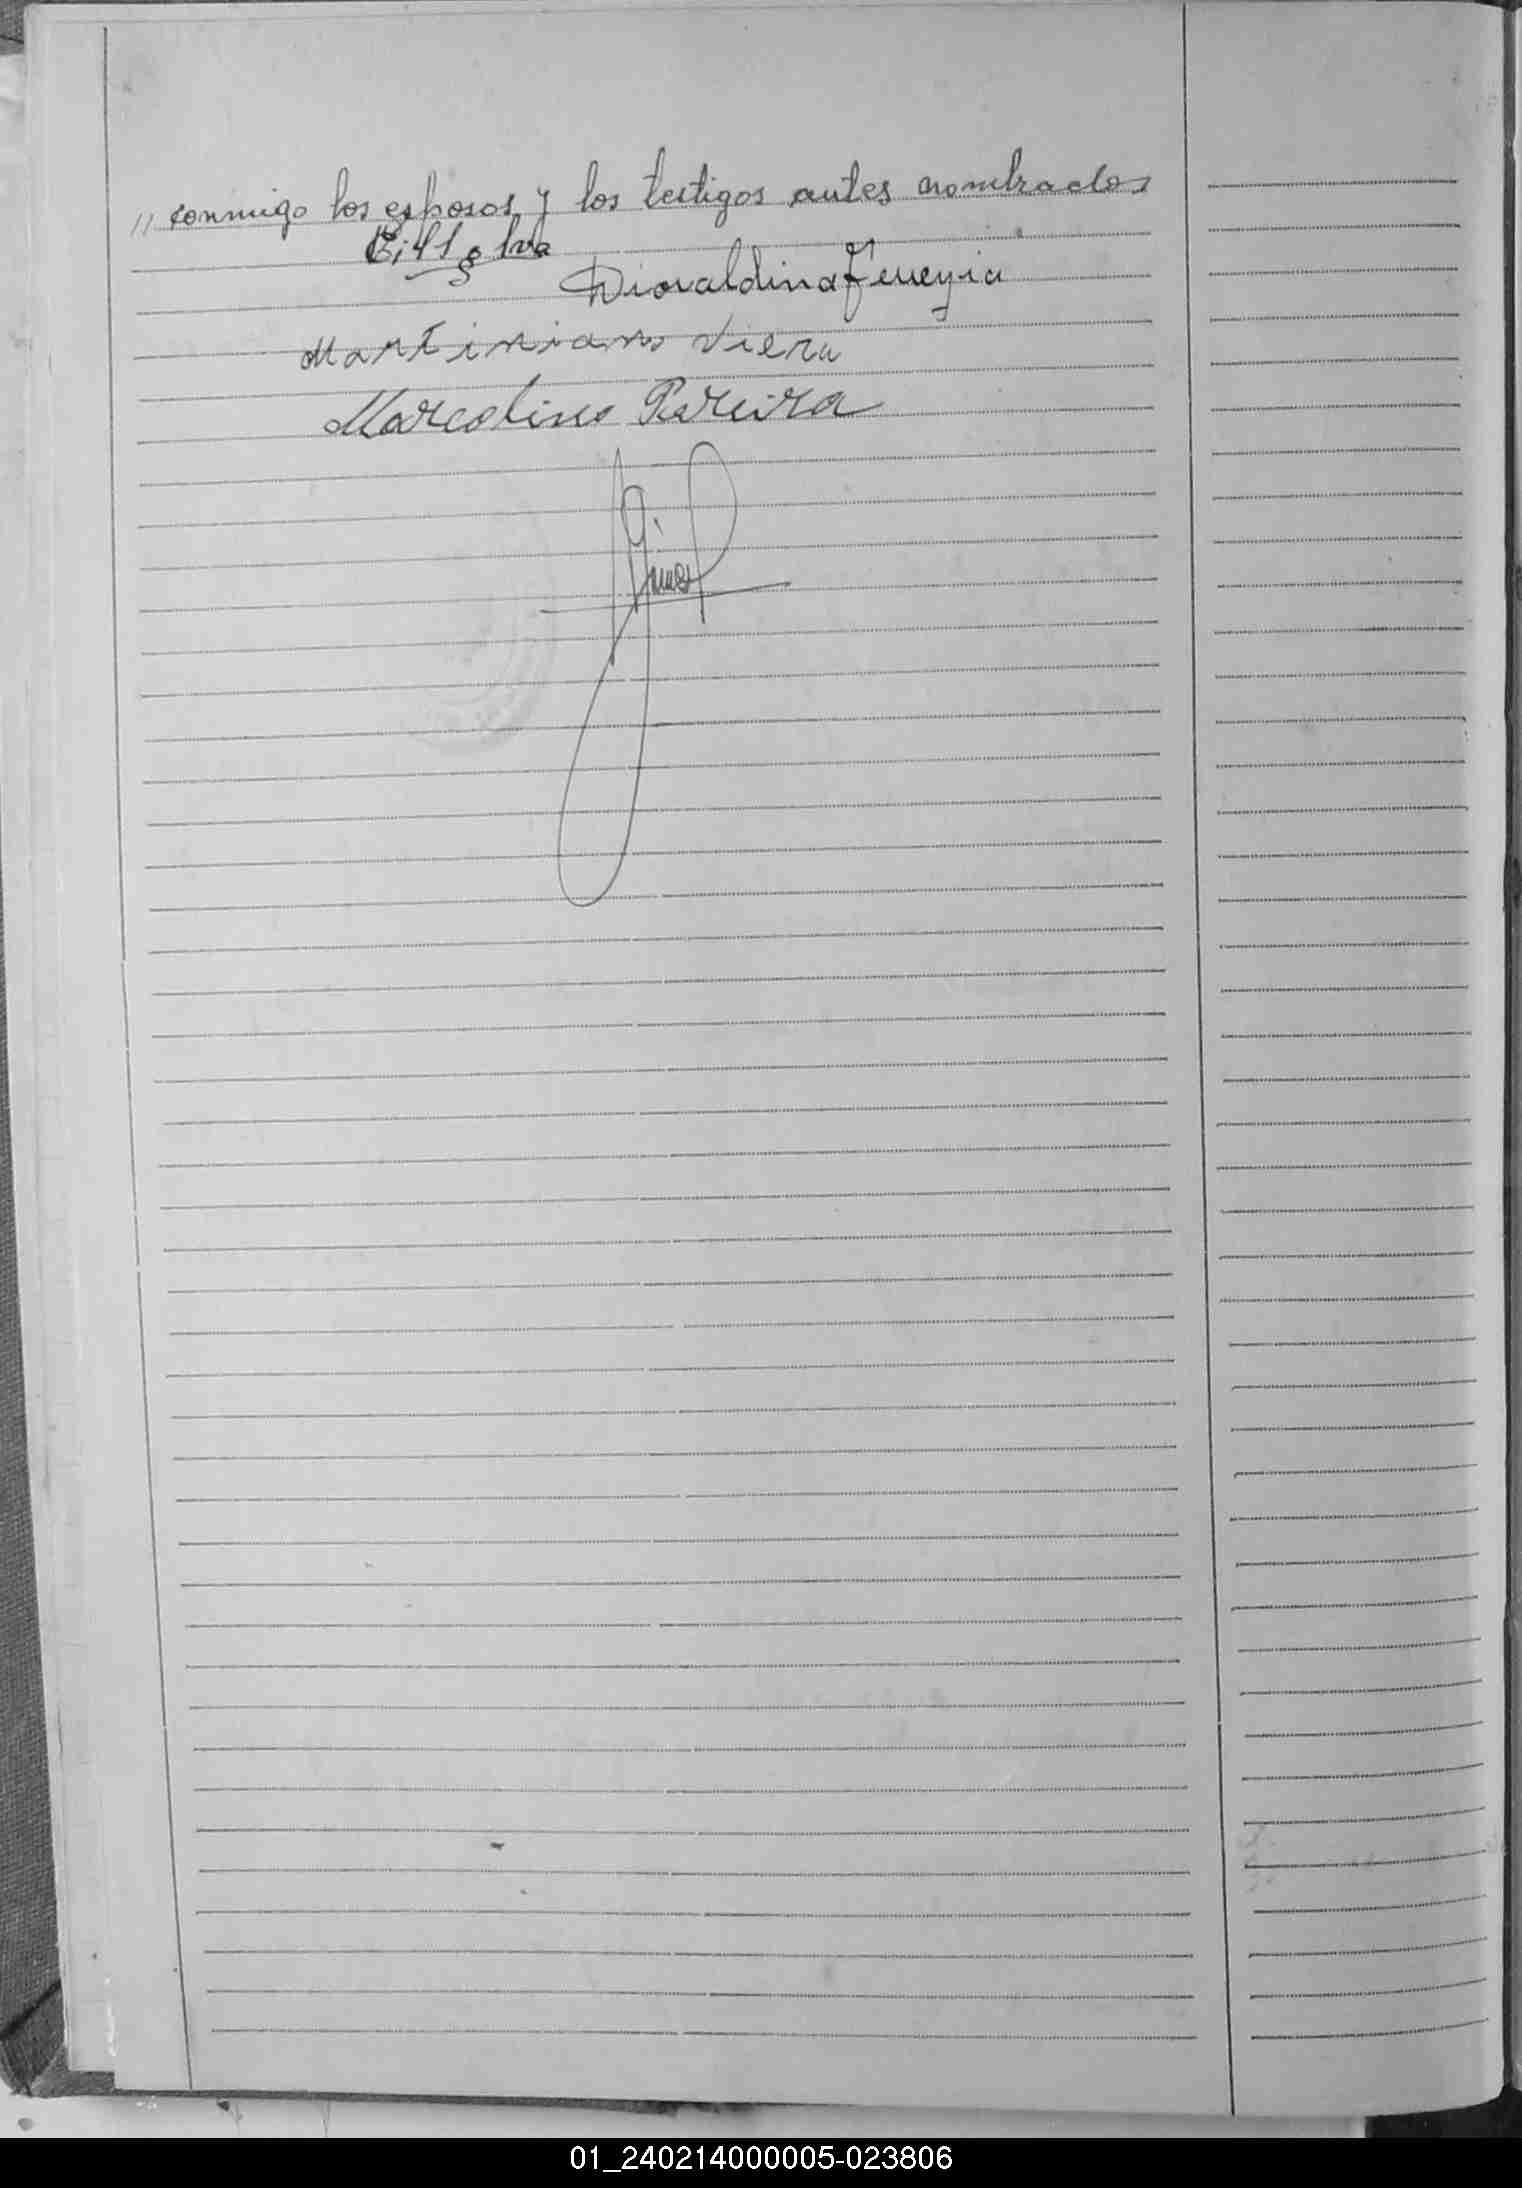 " conmigo los esposos y los testigos antes nombrados
Diovaldina Ferreyra
Martiniano Viera
Marcolino Pereira
01_240214000005-023806